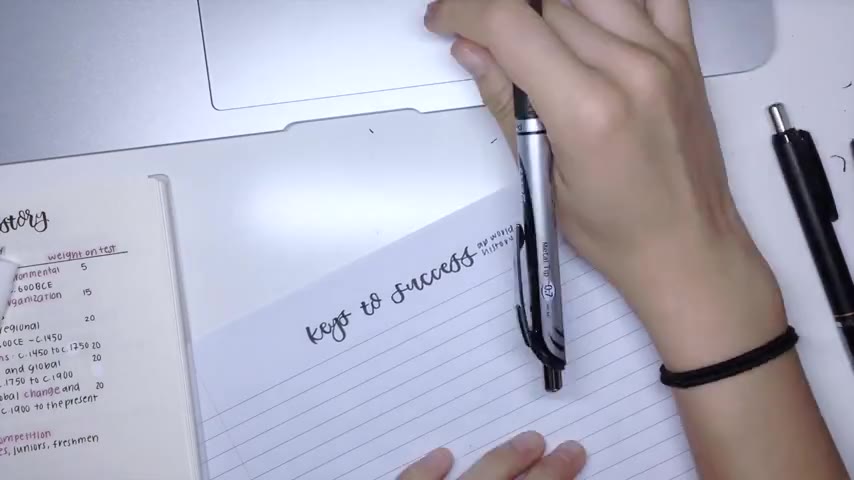 story
weight on test
ronmental 5
. 600BCE
rganization 15
regional 20
.00CE - c.1450
ns: c.1450 to c.1750 20
and global 20
.1750 to c.1900
obal change and 20
c.1900 to the present
competition
es, juniors, freshmen
keys to success
ap world
history
Metal Tip 0.7